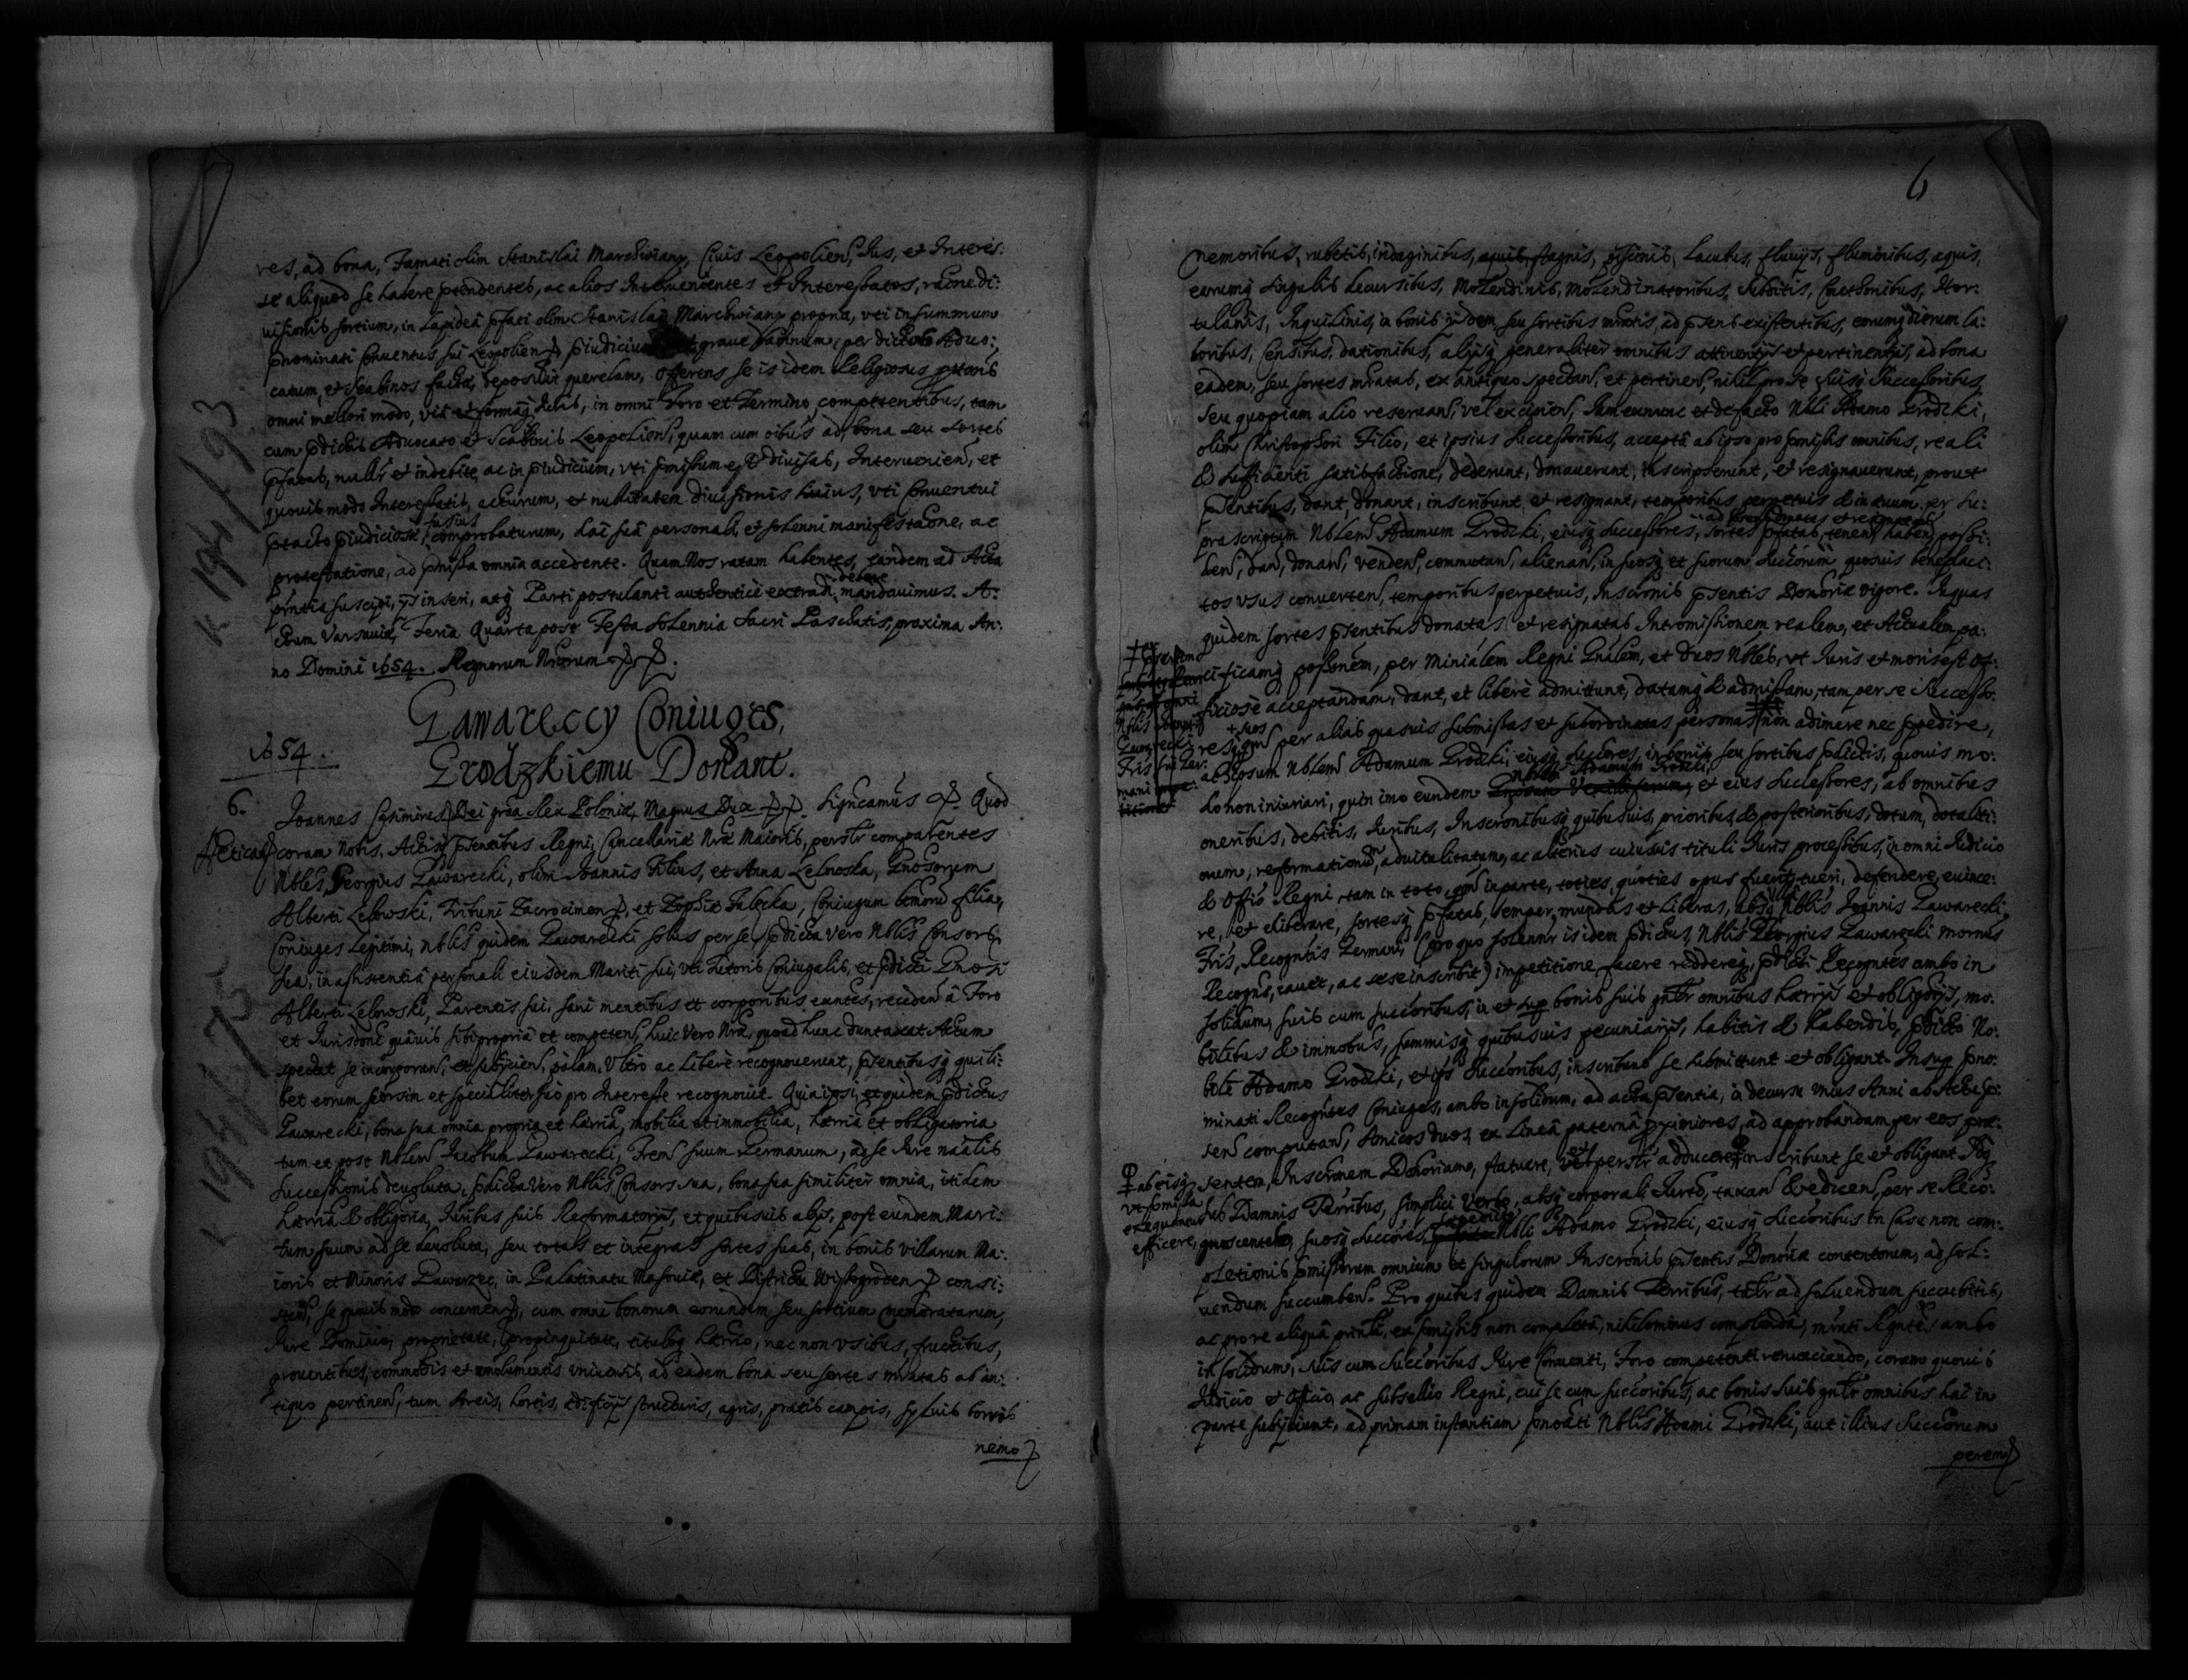 res, ad bona, Famati olim Stanislai Marchwiany, Ciuis Leopolien, Ius, et Interes:
se aliquod se habere ptendentes, ac alios Interuenientes et Interessatos, raone di:
uisionis sortium, in lapidea pfati olim Stanislai Marchwiany propria, vti in summum
pnominati Conuentus sui Leopolien piudicium graue damnum, per dictos Aduo:
catum, et Scabinos facta, deposuit querelam, offerens se is idem Religiosus pttans
omni meliori modo, via et formaq Iuris, in omni Foro et Termino, competentibus, tam
cum pdictis Aduocato et Scabinis Leopolien, quam cum oibus ad bona seu sortes
pfatas, nullr et indebite, ac in piudicium, vti pmissum e, diuisas, Interuenien, et
quouis modo Interessatis, acturum, et nullitatem diuisionis huius, vti Conuentui
ptacto piudiciosae, fusius comprobaturum, hac sua personali, et solenni manifestaone, ac
protestatione, ad pmissa omnia accedente. Quam Nos ratam habentes, eandem ad Acta
pntia suscipi, ijs inseri, atq Parti postulanti authentice extradi debere mandauimus. A:
ctum Varsauiae, Feria Quarta post Festa Solennia Sacri Paschatis, proxima An:
no Domini 1654. Regnorum Nrorum
Gawareccy Coniuges,
Grodzkiemu Donant.
1654.
6.
Joannes Casimirus Dei gra Rex Poloniae, Magnus Dux. Significamus. Quod
coram Nobis, Actisq psentibus Regni, Cancellariae Nrae Maioris, personlr comparentes
Nbles, Georgius Gawarecki, olim Joannis Filius, et Anna Lelowska, Gnosorum
Alberti Lelowski, Tribuni Zacrocimen, et Zophiae Galecka, Coniugum filia,
Coniuges Legitimi, Nblis quidem Gawarecki solus per se, pdicta vero Nblis Consors
sua, in assistentia personali eiusdem Mariti sui, vti Tutoris Coniugalis, et pdicti Gnosi
Alberti Lelowski, Parentis sui, sani mentibus et corporibus euntes, receden a Foro
et Iurisdone quauis sibi propria et competen, huic vero Nrae, quoad hunc duntaxat Actum
spectat se incorporan, et subijcien, palam, vltro ac libere recognouerunt, psentibusq quili:
bet eorum seorsim et specialiter suo pro Interesse recognouit. Quia ipsi, et quidem pdictus
Gawarecki, bona sua omnia propria et haeria, mobilia et immobilia, haeria et obligatoria
tum ea post Nblem Jacobum Gawarecki, Frem suum Germanum, ad se Iure naalis
Successionis deuoluta, pdicta vero Nblis Consors sua, bona sua similiter omnia, itidem
haeria et obligoria, Iuribus suis Reformatorijs, et quibusuis alijs, post eundem Mari:
tum suum ad se deuoluta, seu totas et integras sortes suas, in bonis villarum Ma:
ioris et Minoris Gawarzec, in Palatinatu Masouiae, et Districtu Wissogroden consi:
sten, se quouis modo concernen, cum omni bonorum eorundem seu sortium memoratarum,
Iure Dominio, proprietate, propinquitate, tituloq haerio, nec non vsibus, fructibus,
prouentibus, commodis et emolumentis vniuersis, ad eadem bona seu sortes mratas ab an:
tiquo pertinen, tum areis, hortis, aedificijs structuris, agris, pratis campis, syluis borris
nemo
6
nemoribus, rubetis, indaginibus, aquis, stagnis, piscinis, lacubus, fluuijs, fluminibus, aquis,
earumq singulis decursibus, molendinis, molendinatoribus, subditis, Cmethonibus, Hor:
tulanis, Inquilinis, in bonis ijsdem, seu sortibus mratis, ad psens existentibus, eorumq diorum la:
boribus, censibus, dationibus, alijsq generaliter omnibus attinentijs et pertinentijs, ad bona
eadem, seu sortes mratas, ex antiquo spectan, et pertinen, nihil pro se suisq Successoribus,
seu quopiam alio reseruan, vel excipien, Iam eunune et de facto Nbli Adamo Grodzki,
olim Christophori Filio, et ipsius Successoribus, accepta ab ipso pro pmissis omnibus, reali
& sufficienti satisfactione, dederunt, donauerunt, inscripserunt, et resignauerunt, prout
psentibus, dant, donant, inscribunt et resignant, temporibus perpetuis & in aeuum, per su:
prascriptum Nblem Adamum Grodzki, eiusq Successores, sortes pfatas, tenen, haben, possi:
den, dan, donan, venden, commutan, alienan, in suosq et suorum Succorum quosuis beneplaci:
tos vsus conuerten, temporibus perpetuis, Inscronis psentis Donoriae vigore. In quas
quidem sortes psentibus donatas et resignatas Intromissionem realem, et Actualem pa:
cificamq possonem, per Minialem Regni Gnalem, et duos Nbles, vt Iuris et moris est of:
ficiose acceptandam, dant, et libere admittunt, datamq & admissam, tam per se Successo:
res, qm per alias quasuis submissas et subordinatas personas non adimere nec ppedire,
ab ipsum Nblem Adamum Grodzki, eiusq Succores, in bonis seu sortibus pdictis, quouis mo:
do non iniuriari, quin imo eundem Nblem Adamum Grodzki, et eius Successores, ab omnibus
oneribus, debitis, Iuribus, Inscronibusq quibusuis, prioribus & posterioribus, dotum, dotaliti:
orum, reformationum, aduitalitatum, ac alterius cuiusuis tituli Iuris processibus, in omni Iudicio
& Offo Regni, tam in toto, qm in parte, toties, quoties opus fuerit, tueri, defendere, euince:
re, et eliberare, sortesq pfatas, semper mundas et liberas, absq Nblis Joannis Gawarecki,
Fris, Recogntis Germani, (pro quo solennr is idem pdictus, Nblis Georgius Gawarecki mornus
Recogns, cauet, ac sese inscribit) impetitione facere reddereq, pdicti Recogntes ambo in
solidum, suis cum succoribus, in et sup bonis suis gnlr omnibus haerijs et obligorijs, mo:
bilibus & immobus, summisq quibusuis pecuniarijs, habitis & habendis, pdicto No:
bili Adamo Grodzki, et ips Succoribus, inscribunt se submittunt et obligant. Insup pno:
minati Recogntes Coniuges, ambo in solidum, ad acta psentia, in decursu vnius Anni ab Actu p:
sen computan, Amicos duos, ex Linea paterna pximiores, ad approbandam per eos prae:
sentem, Inscronem Donoriam, statuere, et personlr adducere inscribunt se et obligant
ab eisq
vt pmissa
exequantur
efficere,
sub Damnis Terribus, simplici verbo, absq corporali Iurto, taxan & edicen, per se Reco:
gnoscentes, suosq Succores, Nbli Adamo Grodzki, eiusq Succoribus in Casu non com:
pletionis pmissorum omnium et singulorum Inscronis psentis Donoriae contentorum, ad sol:
uendum succumben. Pro quibus quidem Damnis Terribus, tlr ad soluendum succubitis,
ac pro re aliqua prinli, ex pmissis non completa, nihilominus complenda, mrati Rgntes ambo
in solidum, suis cum Succoribus Iure Conuenti, Foro competenti renunciando, coram quouis
Iudicio et Officio, ac subsellio Regni, cui se cum succoribus, ac bonis suis gnlr omnibus hac in
parte subijciunt, ad primam instantiam pnoati Nblis Adami Grodzki, aut illius Succorum
perem